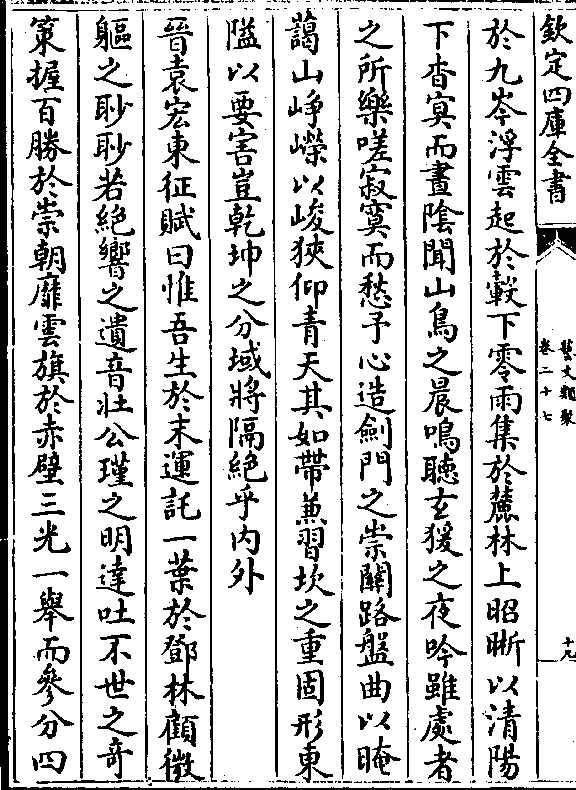 欽定四庫全書
藝文類聚
卷二十七
十九
於九岑浮雲起於轂下零雨集於麓林上昭晰以清陽
下杳冥而晝陰聞山鳥之晨鳴聽玄猨之夜吟雖處者
之所樂嗟寂寞而愁予心造劍門之崇關路盤曲以晻
藹山崢嶸以峻狹仰青天其如帶兼習坎之重固形東
隘以要害豈乾坤之分域將隔絶乎内外
晉袁宏東征賦曰惟吾生於末運託一葉於鄧林顧微
軀之眇眇若絶響之遺音壮公瑾之明達吐不世之竒
策握百勝於崇朝靡雲旗於赤壁三光一舉而參分四